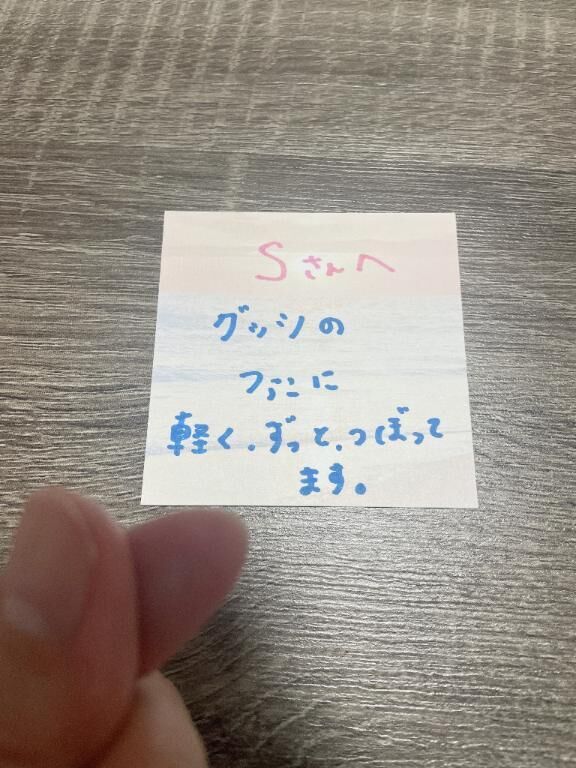 Sさんへ
グッシの
ファンに
軽く.ずっと.つぼって
ます。